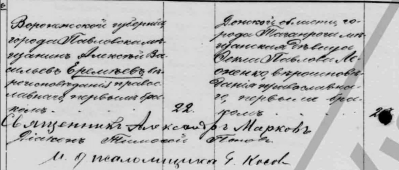 Воронежской губерніи
города Павловска мѣ-
щанинъ Алексѣй Ва-
сильевъ Еремѣевъ, вѣ-
роисповѣданія право-
славнаго, первымъ бра-
комъ.
22
Донской области, го-
рода Таганрога мѣ-
щанская дѣвица
Софія Павлова
вѣроисповѣ-
данія православна-
го, первымъ бра-
комъ
Священникъ Александръ Марковъ
Діаконъ Тимофей Поповъ
И. д. псаломщика Г.